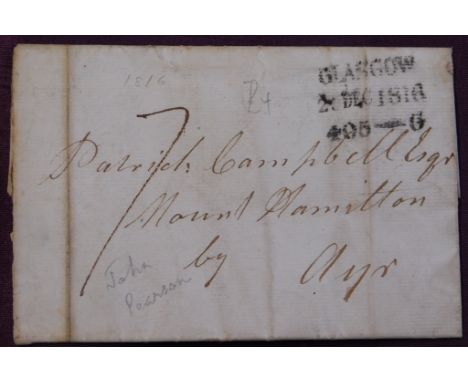 1816
£4
GLASGOW
DEC 1816
405—G
7
Patrick Campbell Esqr
Mount Hamilton
by Ayr
John
Pearson